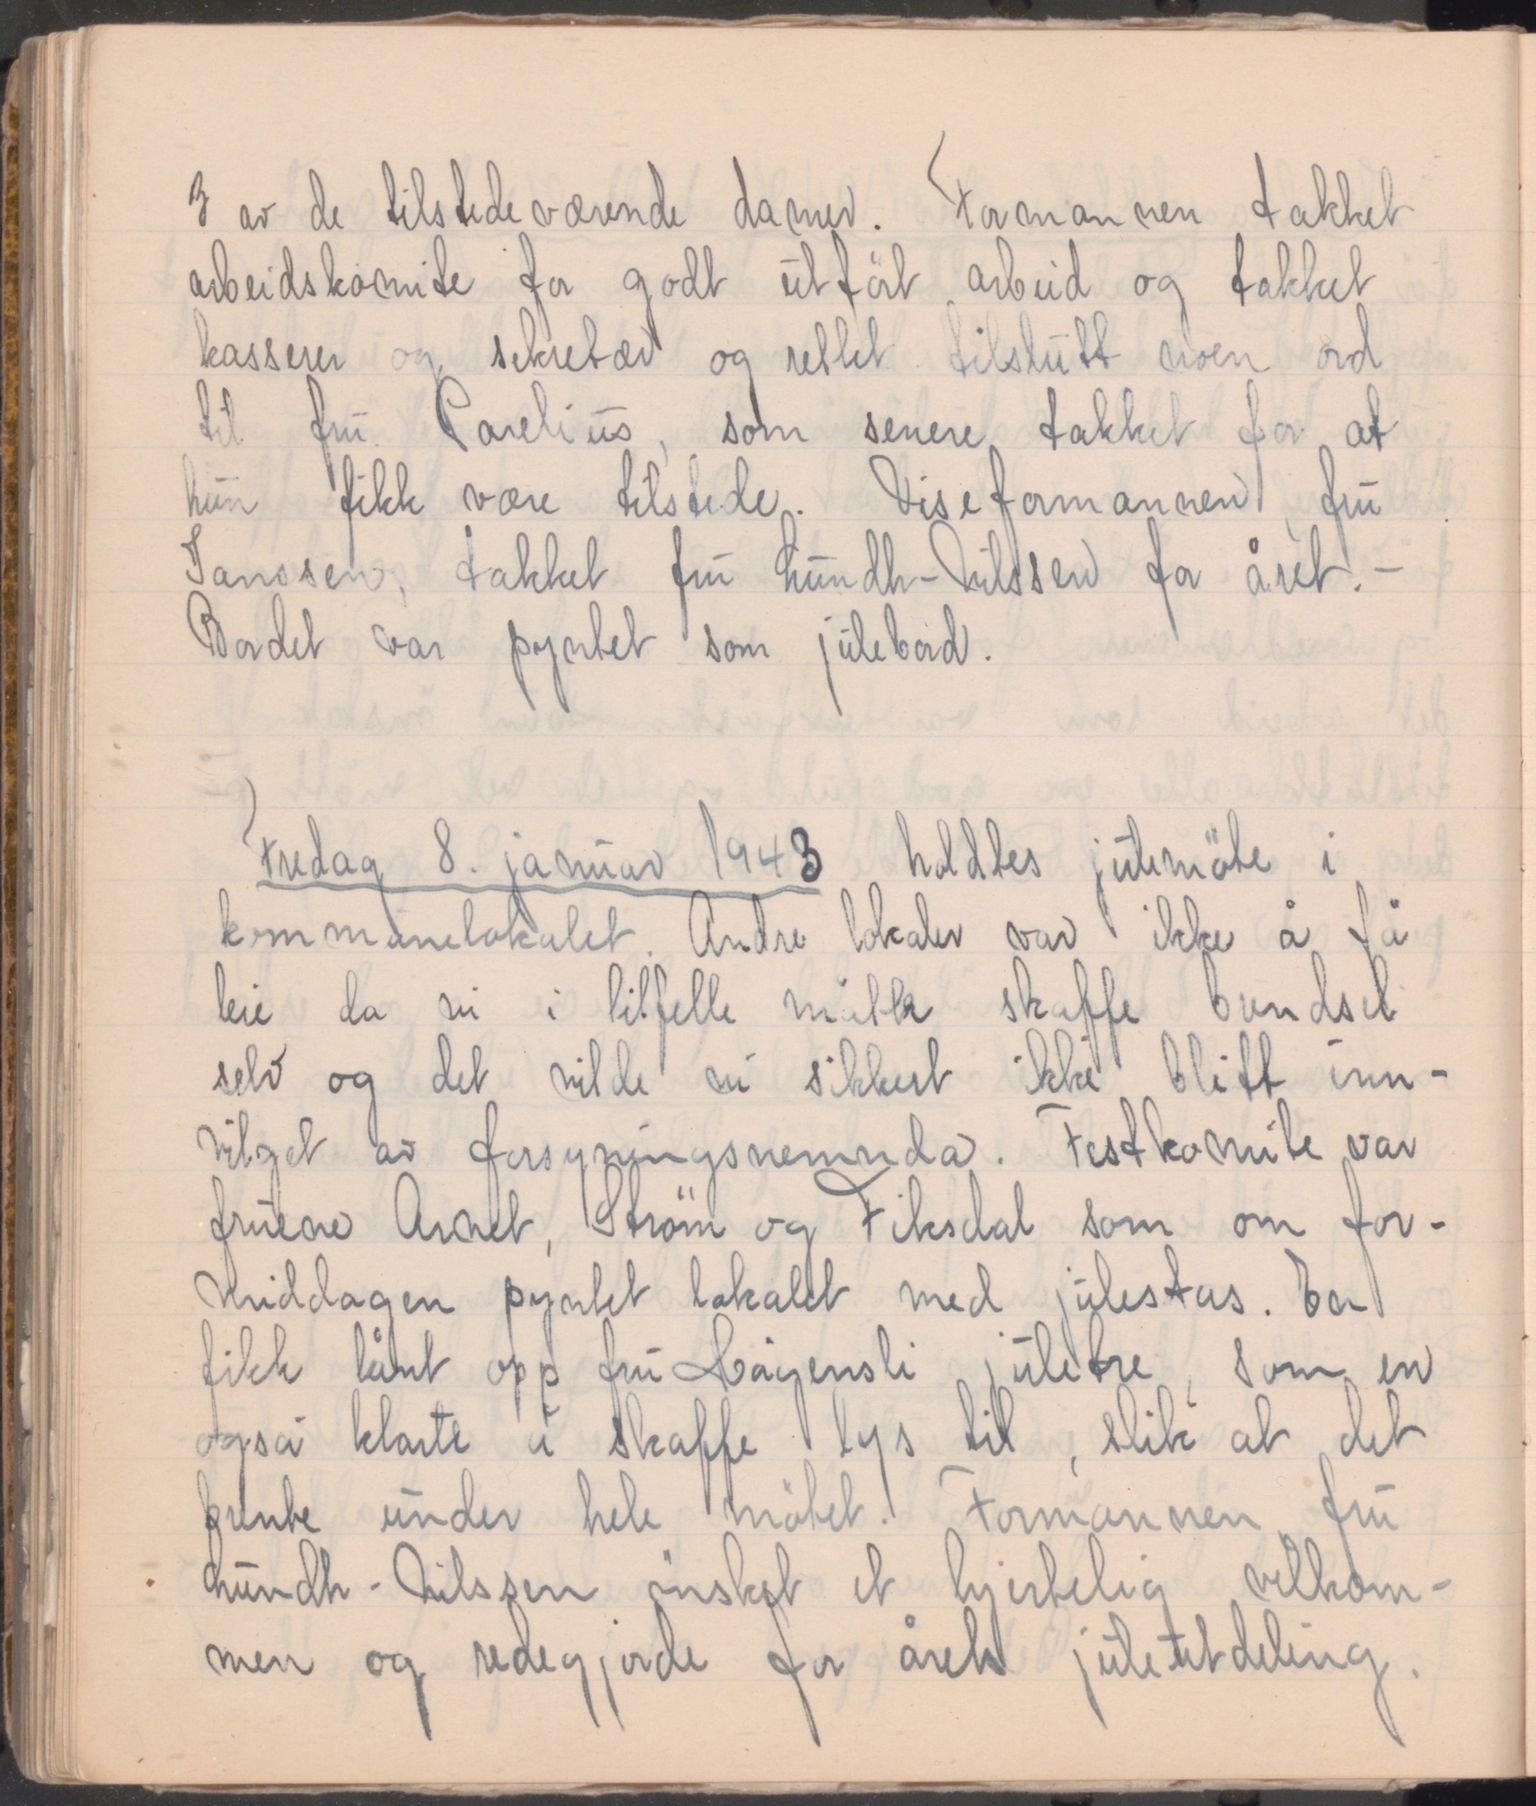 3 av de tilstedeværende damer. Formannen takket
arbeidskomite for godt utført arbeid og takket
kasserer og sekretær og rettet tilslutt noen ord
til fru Parelius, som senere takket for at
hun fikk være tilstede. Viseformannen, fru
Janssen, takket fru Lundh-Nilssen for året.-
Bordet var pyntet som julebord.
Fredag 8. januar 1943 holdtes julemöte i
kommunelokalet. Andre lokaler var ikke å få
leie da vi i tilfelle måtte skaffe brendsel
selv og det vilde vi sikkert ikke blitt inn-
vilget av forsyningsnemnda. Festkomite var
fruene Arnet, Ström og Fiksdal som om for-
middagen pyntet lokalet med julestas. En
fikk lånt opp fru Hågensli juletre, som en
også klarte å skaffe lys til, slik at det
brente under hele mötet. Formannen, fru
Lundh-Nilssen önsket et hjertelig velkom-
men og redegjorde for årets juleutdeling.